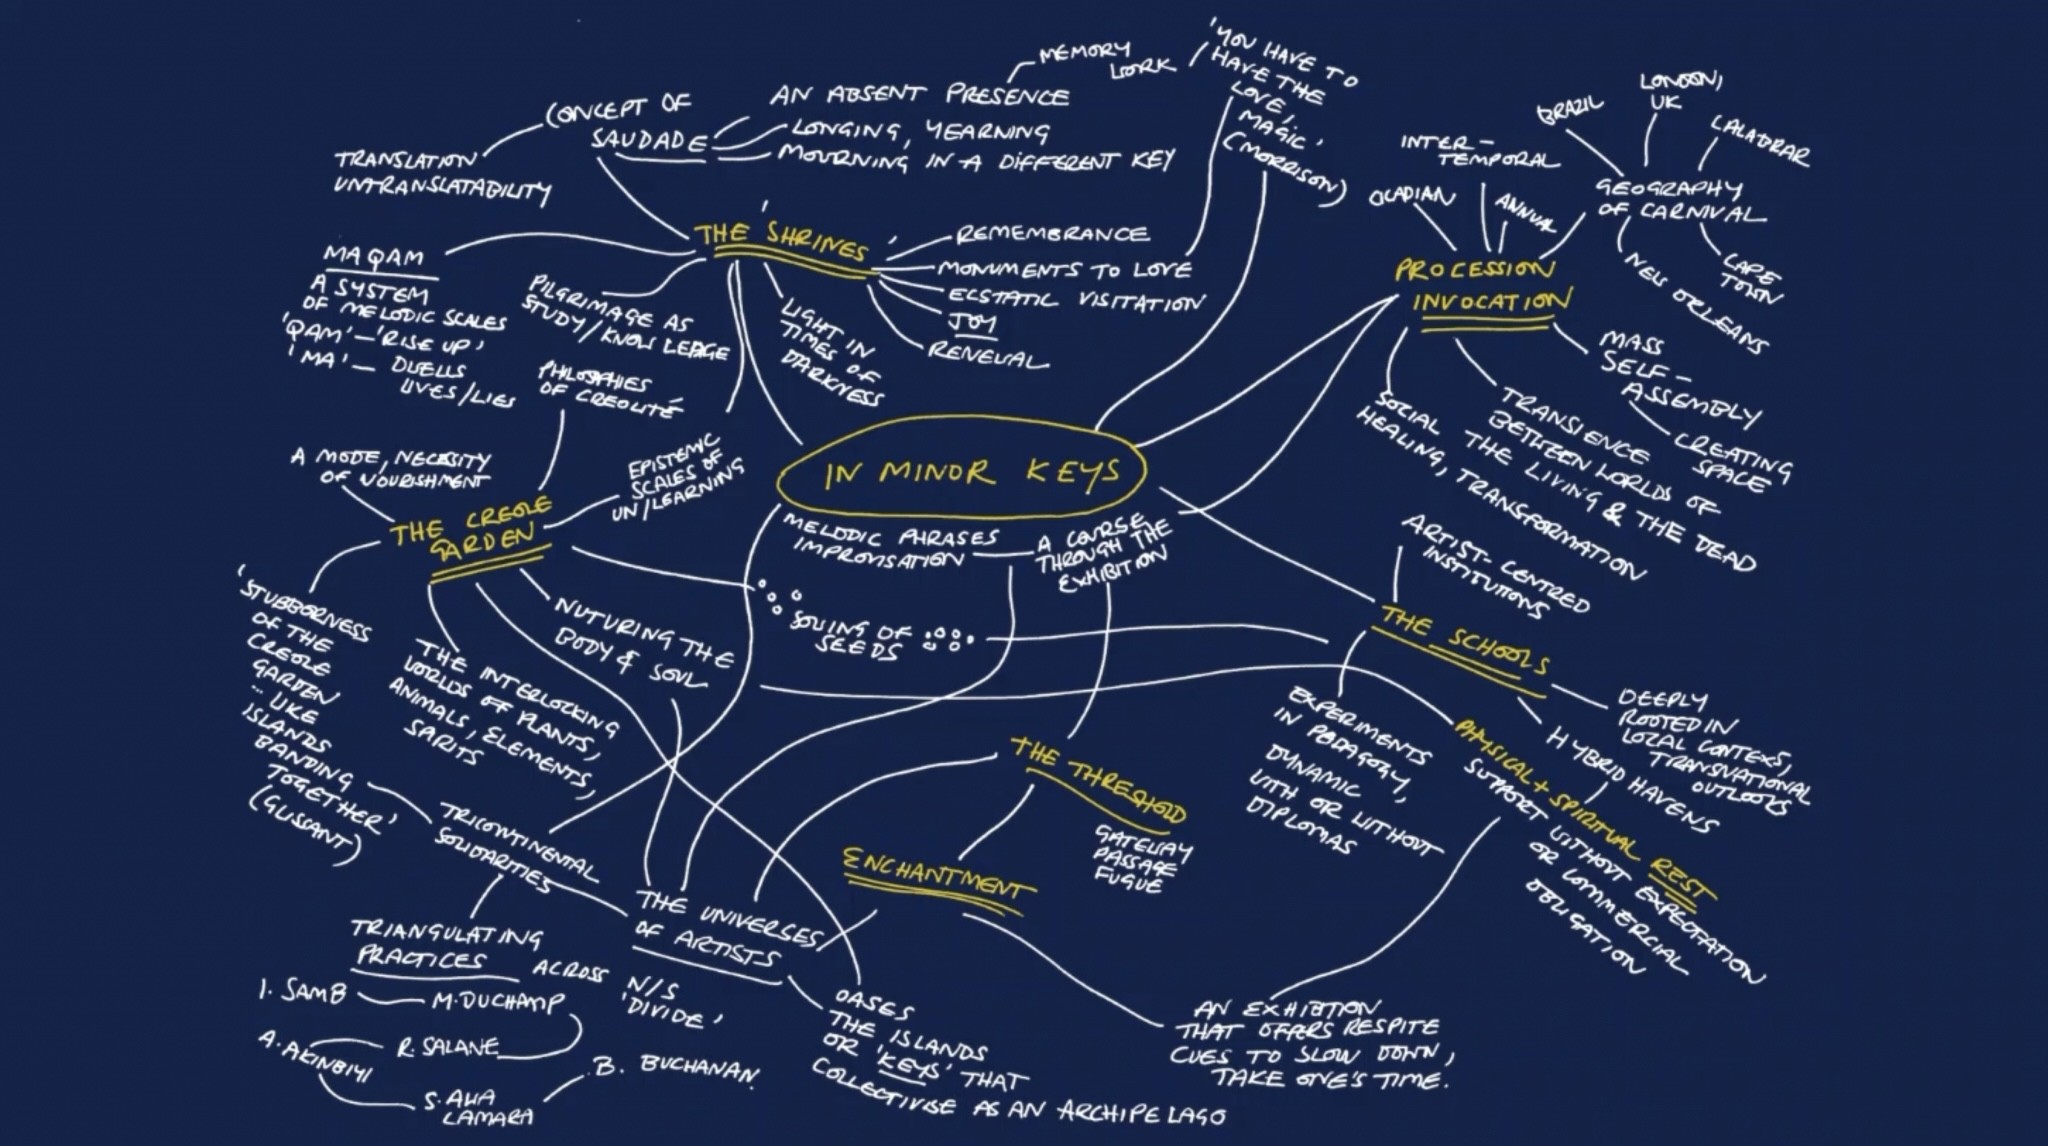 CONCEPT OF
SAUDADE
AN ABSENT PRESENCE
MEMORY
WORK
LONGING, YEARNING
MOURNING IN A DIFFERENT KEY
TRANSLATION
UNTRANSLATABILITY
'YOU HAVE TO
HAVE THE
LOVE,
MAGIC.'
(MORRISON)
'THE SHRINES'
REMEMBRANCE
MONUMENTS TO LOVE
ECSTATIC VISITATION
JOY
RENEWAL
LIGHT IN
TIMES OF
DARKNESS
PILGRIMAGE AS
STUDY/KNOWLEDGE
MAQAM
A SYSTEM
OF MELODIC SCALES
'QAM' — 'RISE UP'
'MA' — DWELLS
LIVES/LIES
PROCESSION
INVOCATION
INTER-
TEMPORAL
ANNUAL
GEOGRAPHY
OF CARNIVAL
BRAZIL
LONDON,
UK
NEW ORLEANS
CAPE
TOWN
MASS
SELF-
ASSEMBLY
CREATING
SPACE
TRANSIENCE
BETWEEN WORLDS OF
THE LIVING & THE DEAD
SOCIAL
HEALING, TRANSFORMATION
IN MINOR KEYS
MELODIC PHRASES
IMPROVISATION
A COURSE
THROUGH THE
EXHIBITION
PHILOSPHIES
OF CREOLITÉ
A MODE, NECESSITY
OF NOURISHMENT
THE CREOLE
GARDEN
EPISTEMIC
SCALES OF
UN/LEARNING
'STUBBORNESS
OF THE
CREOLE
GARDEN
... LIKE
ISLANDS
BANDING
TOGETHER'
(GLISSANT)
THE INTERLOCKING
WORLDS OF PLANTS,
ANIMALS, ELEMENTS,
NUTURING THE
BODY & SOUL
SOWING OF
SEEDS
ARTIST-CENTRED
INSTITUTIONS
THE SCHOOLS
EXPERIMENTS
IN PEDAGOGY,
DYNAMIC
WITH OR WITHOUT
DIPLOMAS
HYBRID HAVENS
DEEPLY
ROOTED IN
LOCAL CONTEXS,
TRANSNATIONAL
OUTLOOKS
PHYSICAL + SPIRITUAL REST
SUPPORT WITHOUT EXPECTATION
OR COMMERCIAL
OBLIGATION
THE THRESHOLD
GATEWAY
PASSAGE
FUGUE
ENCHANTMENT
TRICONTINENTAL
SOLIDARITIES
THE UNIVERSES
OF ARTISTS
TRIANGULATING
PRACTICES ACROSS N/S
'DIVIDE'
I. SAMB
M. DUCHAMP
A. AKINBIYI
R. SALANE
B. BUCHANAN.
LAMARA
OASES
THE ISLANDS
OR 'KEYS' THAT
COLLECTIVISE AS AN ARCHIPELAGO
AN EXHIBITION
THAT OFFERS RESPITE
CUES TO SLOW DOWN,
TAKE ONE'S TIME.